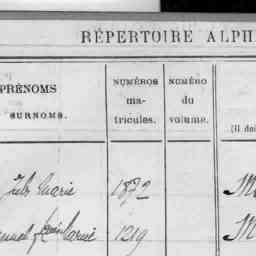 RÉPERTOIRE ALPH
PRÉNOMS
SURNOMS.
NUMÉROS
ma-
tricules.
NUMÉRO
du
volume.
[Il doi
Jules Marie 1832 M
1219 M